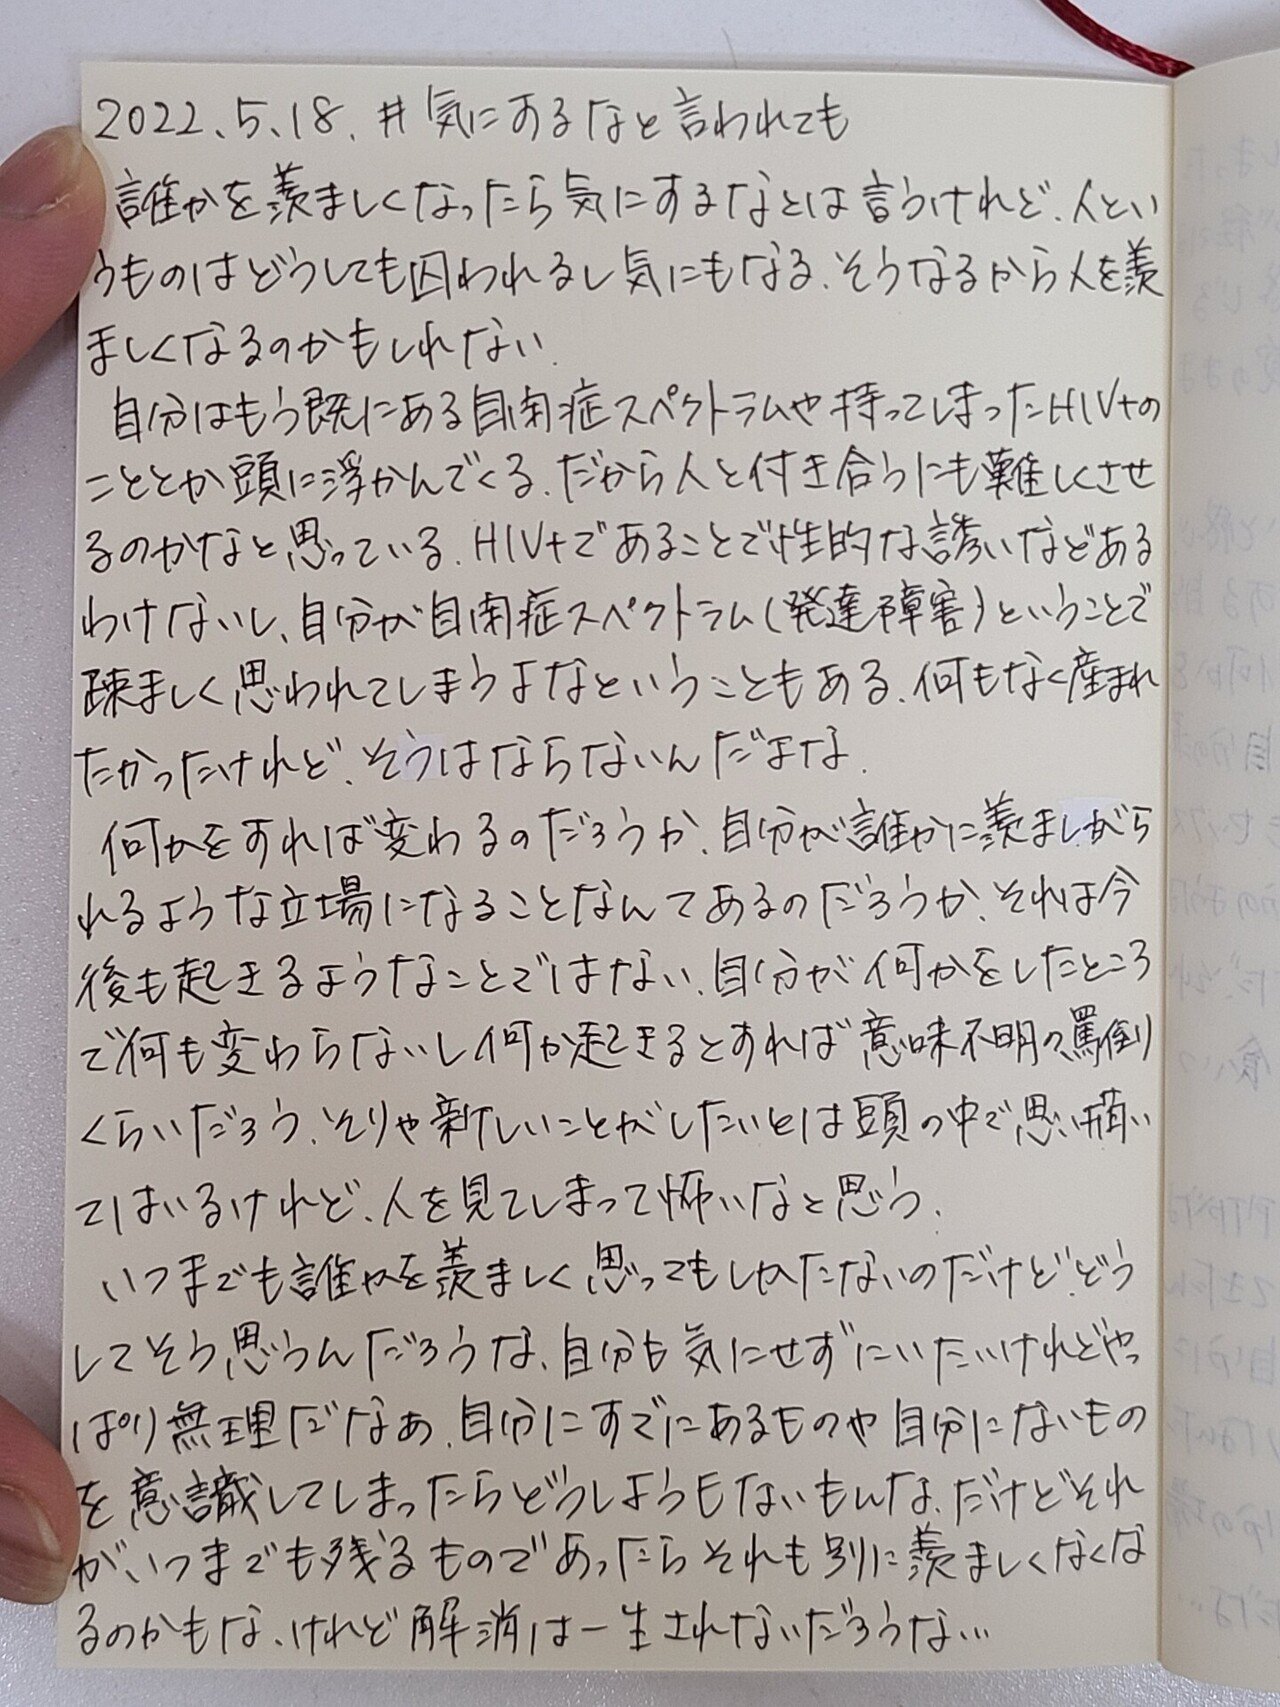 2022.5.18. #気にするなと言われても
誰かを羨ましくなったら気にするなとは言うけれど、人とい
うものはどうしても囚われるし気にもなる。そうなるから人を羨
ましくなるのかもしれない。
自分はもう既にある自閉症スペクトラムや持ってしまったHIV+の
こととか頭に浮かんでくる。だから人と付き合うにも難しくさせ
るのかなと思っている。HIV+であることで性的な誘いなどある
わけないし、自分が自閉症スペクトラム(発達障害)ということで
疎ましく思われてしまうよなということもある。何もなく産まれ
たかったけれど、そうはならないんだよな。
何かをすれば変わるのだろうか。自分が誰かに羨ましがら
れるような立場になることなんてあるのだろうか、それは今
後も起きるようなことではない。自分が何かをしたところ
で何も変わらないし何か起きるとすれば意味不明の罵倒
くらいだろう。そりゃ新しいことがしたいとは頭の中で思い描い
てはいるけれど、人を見てしまって怖いなと思う。
いつまでも誰かを羨ましく思ってもしかたないのだけど、どう
してそう思うんだろうな。自分も気にせずにいたいけれどやっ
ぱり無理だなぁ。自分にすでにあるものや自分にないもの
を意識してしまったらどうしようもないもんな。だけどそれ
が、いつまでも残るものであったらそれも別に羨ましくなくな
るのかもな、けれど解消は一生されないだろうな…